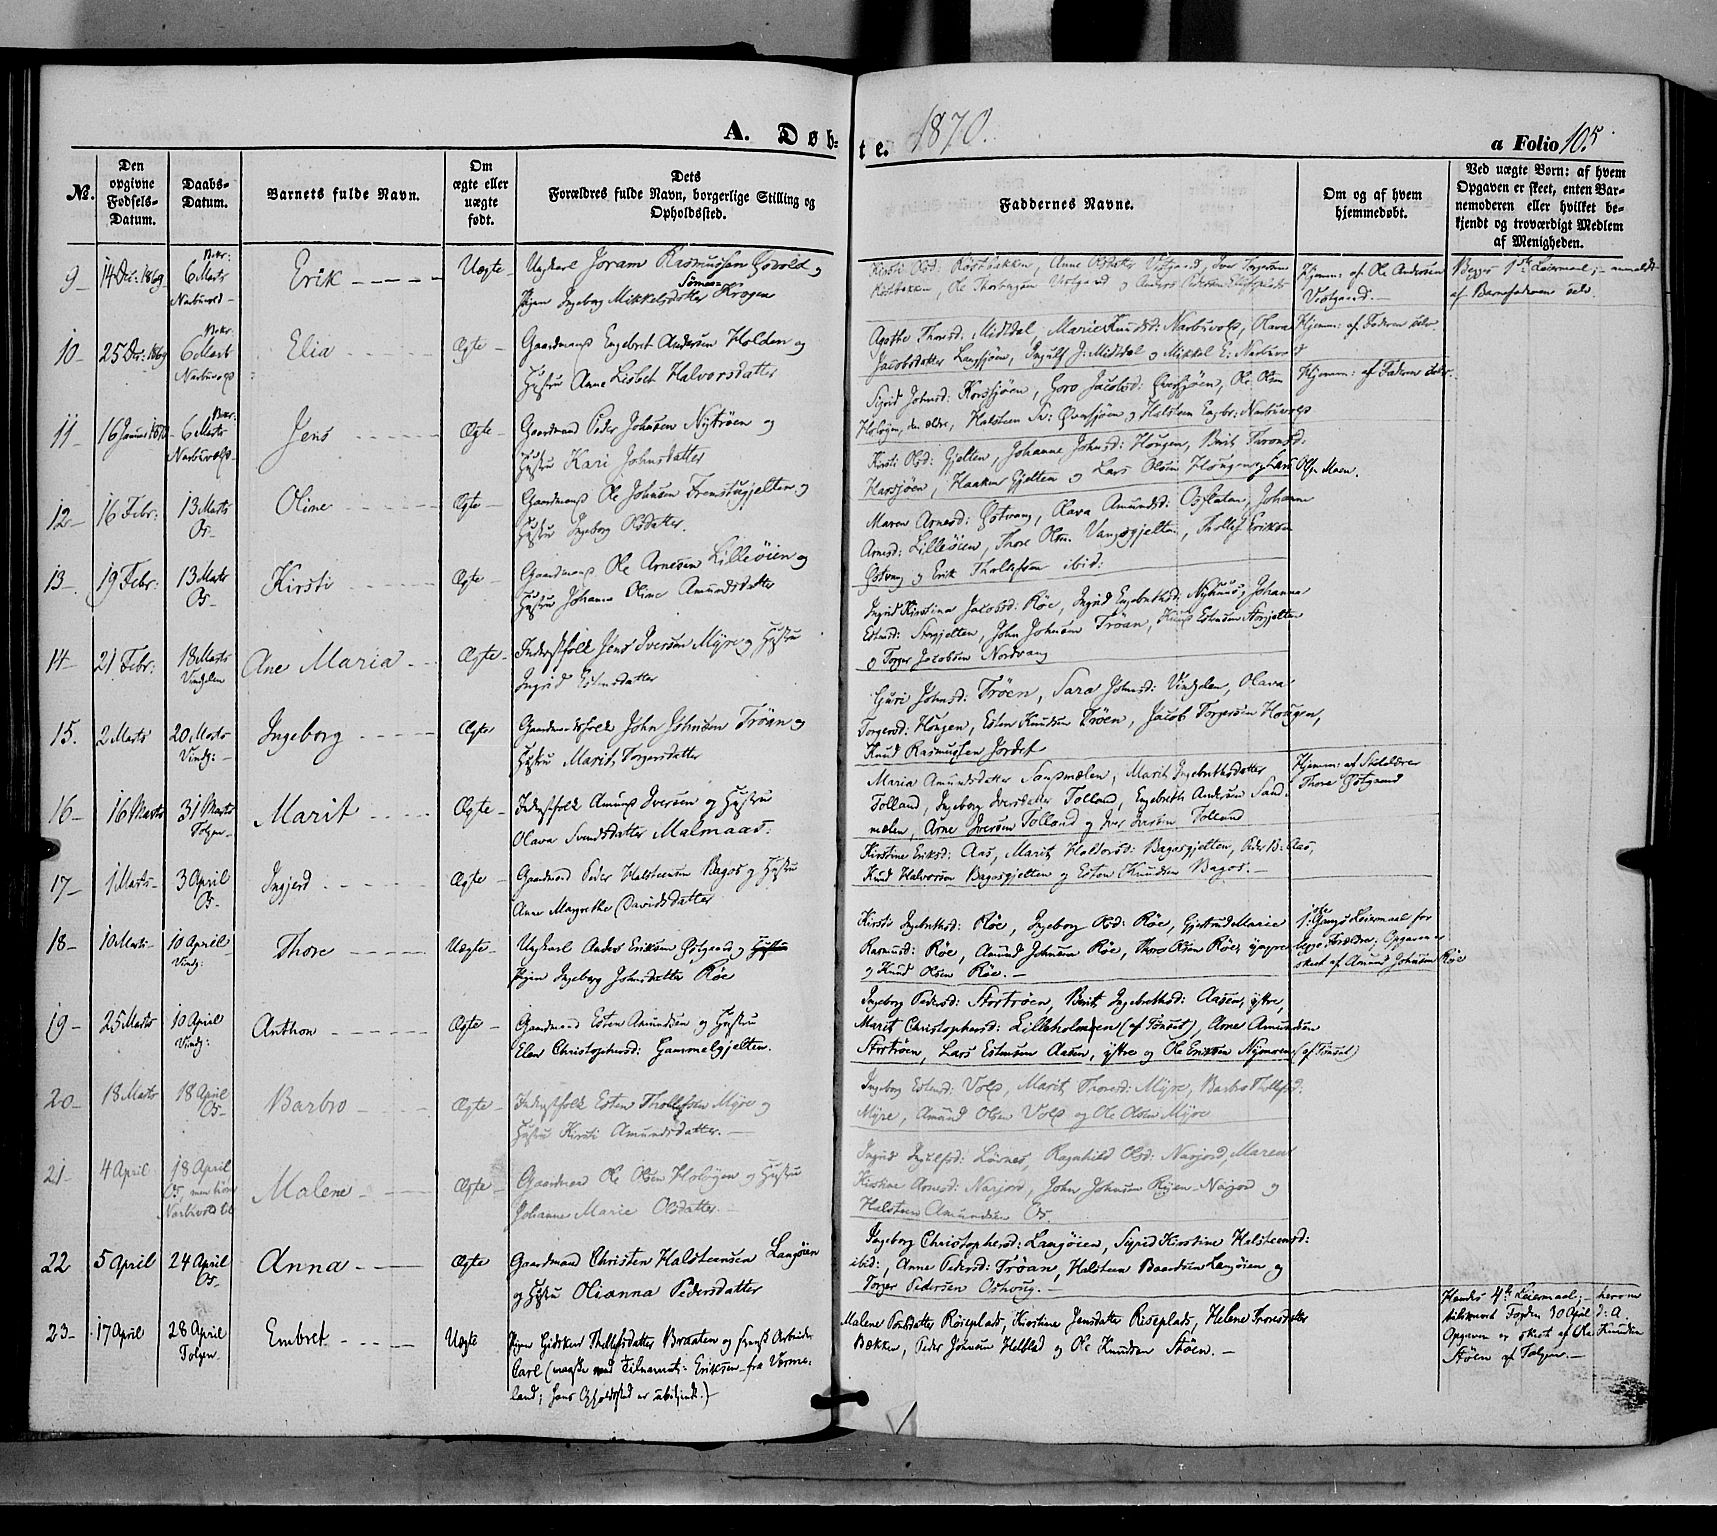 A. Døb-
te. 1870.
a Folio 105.
№.
Den opgivne Fødsels-Datum.
Daabs-Datum.
Barnets fulde Navn.
Om ægte eller uægte født.
Dets Forældres fulde Navn, borgerlige Stilling og Opholdssted.
Faddernes Navne.
Om og af hvem hjemmedøbt.
Ved uægte Børn: af hvem Opgaven er skeet, enten Barnemoderen eller hvilket bekjendt og troværdigt Medlem af Menigheden.
9 14 Dec: 1869 Bekr: 6 Marts Narbuvold Erik Uægte
Ungkarl Joram Rasmussen og
Pigen Ingeborg Mikkelsdatter Krogen
Kirsti Olsd:
Hjemm: af Ole Andersen
Begges 1ste Leiermaal; anmeldt
af Barnefaderen selv.
10 25 Dec: 1869 Bekr: 6 Marts Narbuvold Elia Ægte
Gaardmand Engebret Andersen Holden og
Hustru Anne Lisbet Halvorsdatter
Agathe Thorsd: Middal, Marie Knudsd: Narbuvold, Olava
Jacobsdatter Langsjøen, Ingulf J: Middal og Mikkel E: Narbuvold
Hjemm: af Faderen selv.
11 16 Januar 1870 Bekr: 6 Marts Narbuvold Jens Ægte
Gaardmand Peder Johnsen Nytrøen og
Hustru Kari Johnsdatter
Sigrid Johnsd: Korssjøen, Goro Jacobsd: Øversjøen, Ole Olsen
Holøyen, den ældre, Halsteen Øversjøen og Halsteen Engbr: Narbuvold
Hjemm: af Faderen selv.
12 16 Febr: 13 Marts Os Oline Ægte
Gaardmand Ole Johnsen Fremstugjelten og
Hustru Ingeborg Olsdatter.
Kirsti Olsd: Gjelten, Johanne Johnsd: Hougen, Berit
Harsjøen, Haaken Gjelten og Lars Olsen Hougen og Lars Ols. Moen.
13 19 Febr: 13 Marts Os Kirsti Ægte
Gaardmand Ole Arnesen Lilleøien og
Hustru Johanne Oline Amundsdatter
Maren Arnesd: Østvang, Olava Amundsd: Johanne
Arnesd: Lilleøien, Thore Olsen Vangsgjelten, Thollef Eriksen
Østvang og Erik Thollefsen ibid:
14 21 Febr: 18 Marts Vindgelen Ane Maria Ægte
Inderstfolk Jens Iversen Myre og Hustru
Ingrid Estensdatter
Ingrid Kirstina Jacobsd: Røe, Ingrid Engebrethsd: Nyhuus, Johanna
Estensd: Storgjelten, John Johnsen Trøan, Knud Estensen Storgjelten
og Torger Jacobsen Nordvang
15. 2 Marts 20 Marts Vindg: Ingeborg Ægte
Gaardmandsfolk John Johnsen Trøan og
Hustru Marit Torgersdatter
Guri Johnsd: Trøen, Sara Johnsd: Vindgelen, Olava
Torgersd: Hougen, Esten Knudsen Trøen, Jacob Torgersen Hougen,
Knud Rasmussen Jordet
16 16 Marts 31 Marts Tolgen Marit Ægte
Inderstfolk Amund Iversen og Hustru
Olava Svendsdatter Malmaas.
Maria Amundsdatter Sandmælen, Marit Ingebrethsdatter
Tolland, Ingeborg Iversdatter Tolland, Engebreth Andersen Sand-
mælen, Arne Iversen Tolland og Iver Iversen Tolland
Hjemm: af
Thore Østgaard
17 1 Marts 3 April Os Ingjerd Ægte
Gaardmand Peder Halstensen Bagos og Hustru
Anne Magrethe Davidsdatter
Kirstine Eriksd: Aas, Marit Haldorsd: Bagosgjelten, Peder B. Aas,
Knud Halvorsen Bagosgjelten og Esten Knudsen Bagos.
18 10 Marts 10 April Vindg: Thore Uægte
Ungkarl Anders Eriksen Østgaard og Hustru
Pigen Ingeborg Johnsdatter Røe
Kirsti Ingebrethsd: Røe, Ingeborg Olsd: Røe, Gjertrud Marie
Rasmusd: Røe, Amund Johnsen Røe, Thore Olsen Røe, yngre
og Knud Olsen Røe.
1ste Gangs Leiermaal for
begge Forældre; Opgaven er
skeet af Amund Johnsen Røe
19 25 Marts 10 April Vindg: Anthon Ægte
Gaardmand Esten Amundsen og Hustru
Elen Christophersd: Gammelgjelten.
Ingeborg Pedersd: Stortrøen, Berit Ingebrethsd: Aasen, ystre,
Marit Christophersd: Lilleholmen (af Tønset), Arne Amundsen
Stortrøen, Lars Estensen Aasen, ystre og Ole Eriksen Nymoen (af Tønset)
20 18 Marts 18 April Os Barbro Ægte
Inderstfolk Esten Thollefsen Myre og
Hustru Kirsti Amundsdatter.
Ingeborg Estensd: Vold, Marit Thoresd: Myre, Barbro Thollefsd:
Myre, Amund Olsen Vold og Ole Olsen Myre
21 4 April 18 April Os, men hører Narbuvold til Malene Ægte
Gaardmand Ole Olsen Holøyen og Hustru
Johanne Marie Olsdatter.
Ingrid Ingulfsd: Løvnes, Ragnhild Olsd: Narjord, Maren
Kirstine Arnesd: Narjord, John Johnsen Narjord og
Halsteen Amundsen Os.
22 5 April 24 April Os Anna Ægte
Gaardmand Christen Halsteensen Langøien
og Hustru Olianna Pedersdatter
Ingeborg Christophersd: Langøien, Sigrid Kirstine Halsteensd:
ibid:, Anne Pedersd: Trøan, Halsteen Baardsen Langøien og
Torger Pedersen Oshoug.
23 17 April 28 April Tolgen Embret Uægte
Pigen Gidsken Thollefsdatter Braaten og Arbeider
Carl (maaske med Tilnavnet: Eriksen fra Verme-
land; hans Opholdssted er ubekjendt.)
Malene Røseplads, Kirstine Jensdatter Riseplads, Helene Thoresdatter
Bækken, Peder Johnsen Helblad og Ole Knudsen Støen.
Hendes 4de Leiermaal; herom
tilskrevet Fogden 30 April d: A.
Opgaven er skeet af Ole Knudsen
Støen af Tolgen.